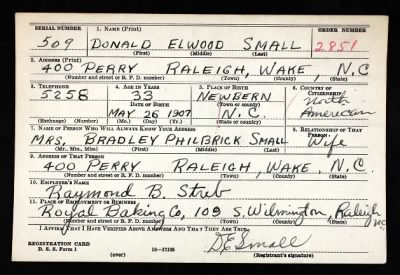 SERIAL NUMBER 1. NAME (Print) ORDER NUMBER
509 DONALD ELWOOD SMALL 2851
(First) (Middle) (Last)
2. ADDRESS (Print)
400 PERRY RALEIGH, WAKE, N.C
(Number and street or R. F. D. number) (Town) (County) (State)
3. TELEPHONE 4. AGE IN YEARS 5. PLACE OF BIRTH 6. COUNTRY OF CITIZENSHIP
5258 33 NEWBERN North American
DATE OF BIRTH
MAY 26 1907 N.C.
(Exchange) (Number) (Mo.) (Day) (Yr.) (State or country)
7. NAME OF PERSON WHO WILL ALWAYS KNOW YOUR ADDRESS 8. RELATIONSHIP OF THAT PERSON
MRS. BRADLEY PHILBRICK SMALL Wife
(Mr., Mrs., Miss) (First) (Middle) (Last)
9. ADDRESS OF THAT PERSON
400 PERRY RALEIGH, WAKE, N.C.
(Number and street or R. F. D. number) (Town) (County) (State)
10. EMPLOYER'S NAME
Raymond B. Streb
11. PLACE OF EMPLOYMENT OR BUSINESS
Royal Baking Co, 109 S. Wilmington, Raleigh NC.
(Number and street or R. F. D. number) (Town) (County) (State)
I AFFIRM THAT I HAVE VERIFIED ABOVE ANSWERS AND THAT THEY ARE TRUE.
REGISTRATION CARD
D. S. S. Form 1 (over) 16—17105 D E Small
(Registrant's signature)